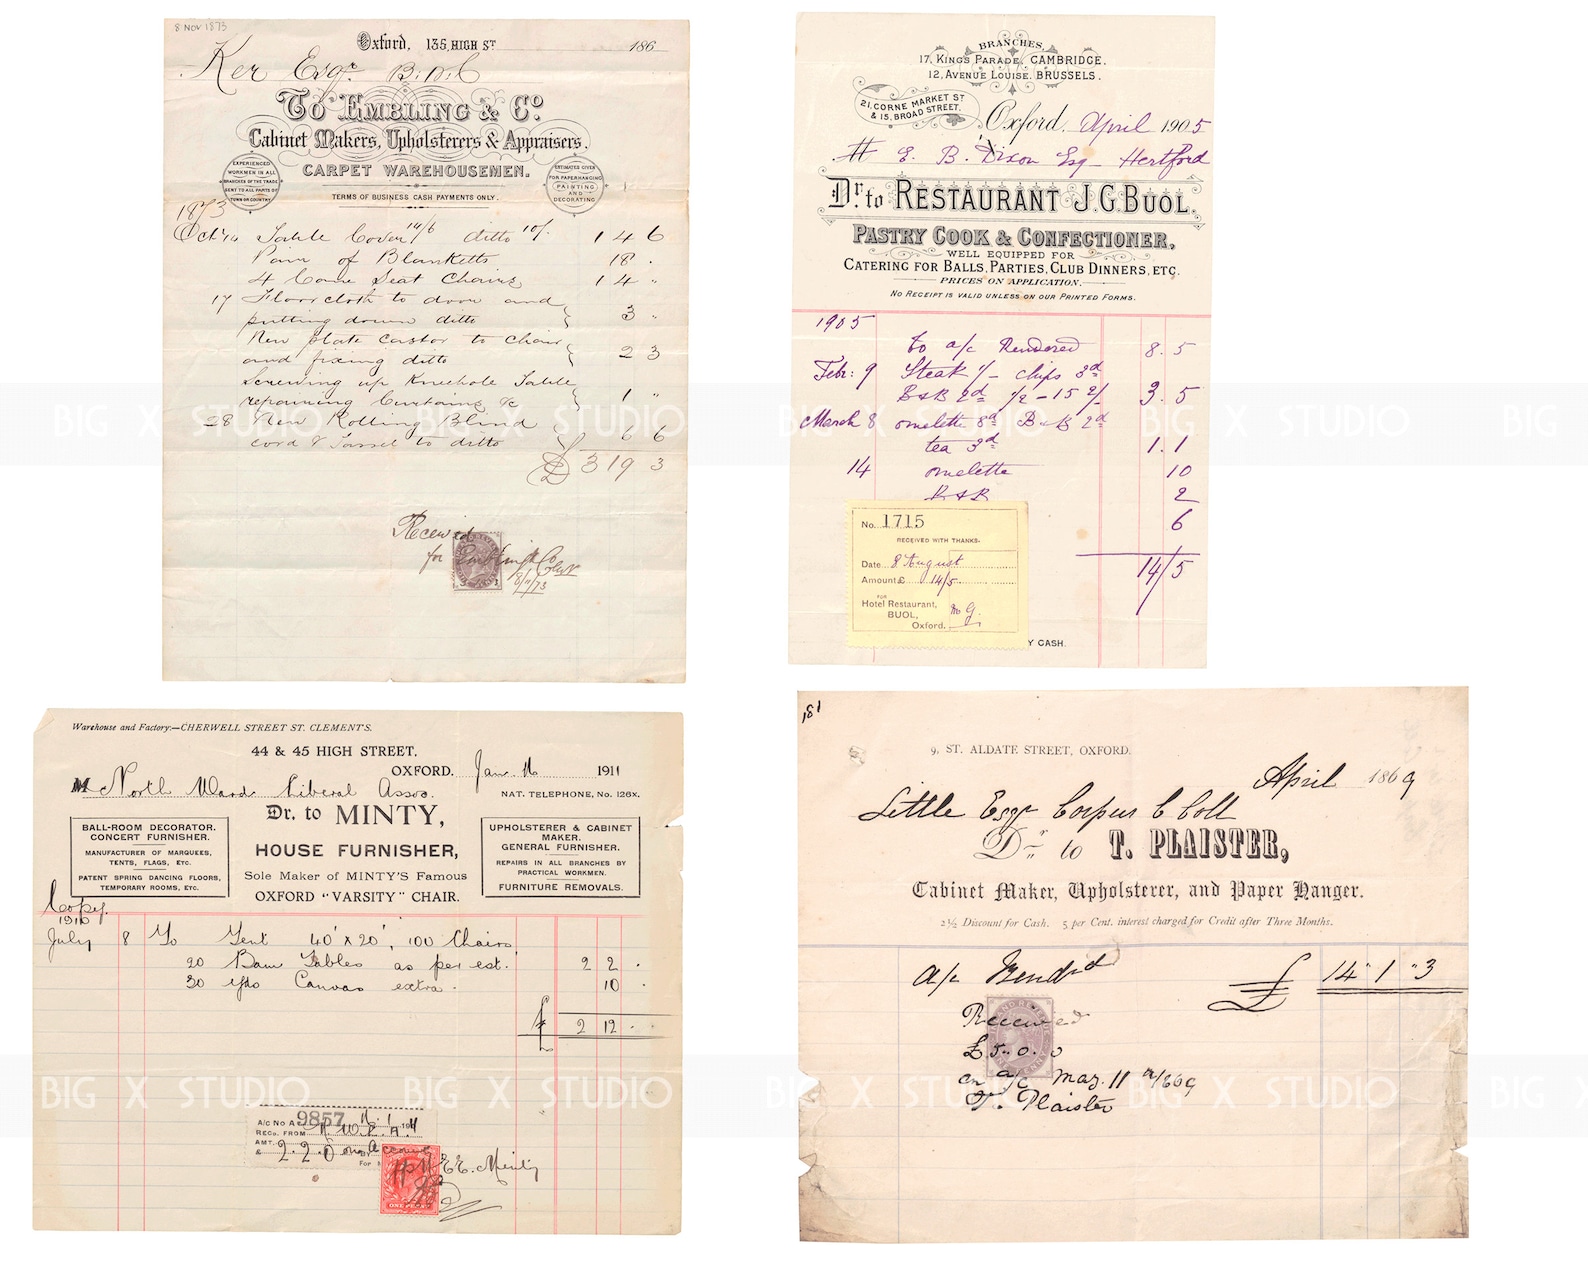 8 NOV 1873
Oxford, 135, HIGH ST 186
Ker Esqr B.N.C
To EMBLING & Co.
Cabinet Makers, Upholsterers & Appraisers.
CARPET WAREHOUSEMEN.
EXPERIENCED
WORKMEN IN ALL
BRANCHES OF THE TRADE
SENT TO ALL PARTS OF
TOWN OR COUNTRY
ESTIMATES GIVEN
FOR PAPERHANGING
PAINTING
AND
DECORATING
TERMS OF BUSINESS CASH PAYMENTS ONLY.
1873
Octr 14 Table Cover 14/6 ditto 10/. 1 4 6
Pair of Blanketts 18 .
4 Cane Seat Chairs 1 4 "
17 Floor cloth to door and
putting down ditto 3 "
New plate castor to chair
and fixing ditto 2 3
Screwing up Kneehole Table
repairing Curtains &c 1 "
28 New Rolling Blind
cord & Tassel to ditto 6 6
£ 3 19 3
Received
for Embling & Co
8/11/73
BRANCHES,
17, KINGS PARADE, CAMBRIDGE.
12, AVENUE LOUISE, BRUSSELS.
21, CORNE MARKET ST
& 15, BROAD STREET.
Oxford, April 1905
E. B. Dixon Esq Hertford
Dr. to RESTAURANT J.G. BUOL,
PASTRY COOK & CONFECTIONER,
WELL EQUIPPED FOR
CATERING FOR BALLS, PARTIES, CLUB DINNERS, ETC.
PRICES ON APPLICATION.
NO RECEIPT IS VALID UNLESS ON OUR PRINTED FORMS.
1905
to a/c Rendered 8. 5
Febr: 9 Steak 1/- chips 3d
B&B 2d 1/2 - 15 2/- 3. 5
March 8 omelette 8d B&B 2d
tea 3d 1. 1
14 omelette 10
B&B 2
6
14/5
No. 1715
RECEIVED WITH THANKS.
Date 8 August
Amount £ 14/5
FOR
Hotel Restaurant,
BUOL,
Oxford.
M G.
Y CASH.
Warehouse and Factory:—CHERWELL STREET ST. CLEMENT'S.
44 & 45 HIGH STREET.
OXFORD. Jan. 16 1911
M North Ward Liberal Assoc.
NAT. TELEPHONE, No. 126x.
Dr. to MINTY,
HOUSE FURNISHER,
Sole Maker of MINTY'S Famous
OXFORD "VARSITY" CHAIR.
BALL-ROOM DECORATOR.
CONCERT FURNISHER.
MANUFACTURER OF MARQUEES,
TENTS, FLAGS, ETC.
PATENT SPRING DANCING FLOORS,
TEMPORARY ROOMS, ETC.
UPHOLSTERER & CABINET
MAKER.
GENERAL FURNISHER.
REPAIRS IN ALL BRANCHES BY
PRACTICAL WORKMEN.
FURNITURE REMOVALS.
Copy.
1910
July 8 To Tent 40' x 20', 100 Chairs
20 Bam Tables as per est. 2 2 .
30 yds Canvas extra . 10 .
£ 2 12 .
A/C No A 9857
RECD. FROM N.W.L.A.
AMT.
£ 2. 2. 0 on Account
E.E. Minty
ONE PENNY
181
9, ST. ALDATE STREET, OXFORD.
April 1869
Little Esqr Corpus C Coll
Dr. to T. PLAISTER,
Cabinet Maker, Upholsterer, and Paper Hanger.
2½ Discount for Cash. 5 per Cent. interest charged for Credit after Three Months.
a/c Rendrd £ 14 " 1 " 3
Received
£5..0.0
on a/c May. 11th/869
T. Plaister
BIG X STUDIO BIG X STUDIO BIG X STUDIO BIG X STUDIO BIG
BIG X STUDIO BIG X STUDIO BIG X STUDIO BIG X STUDIO BIG